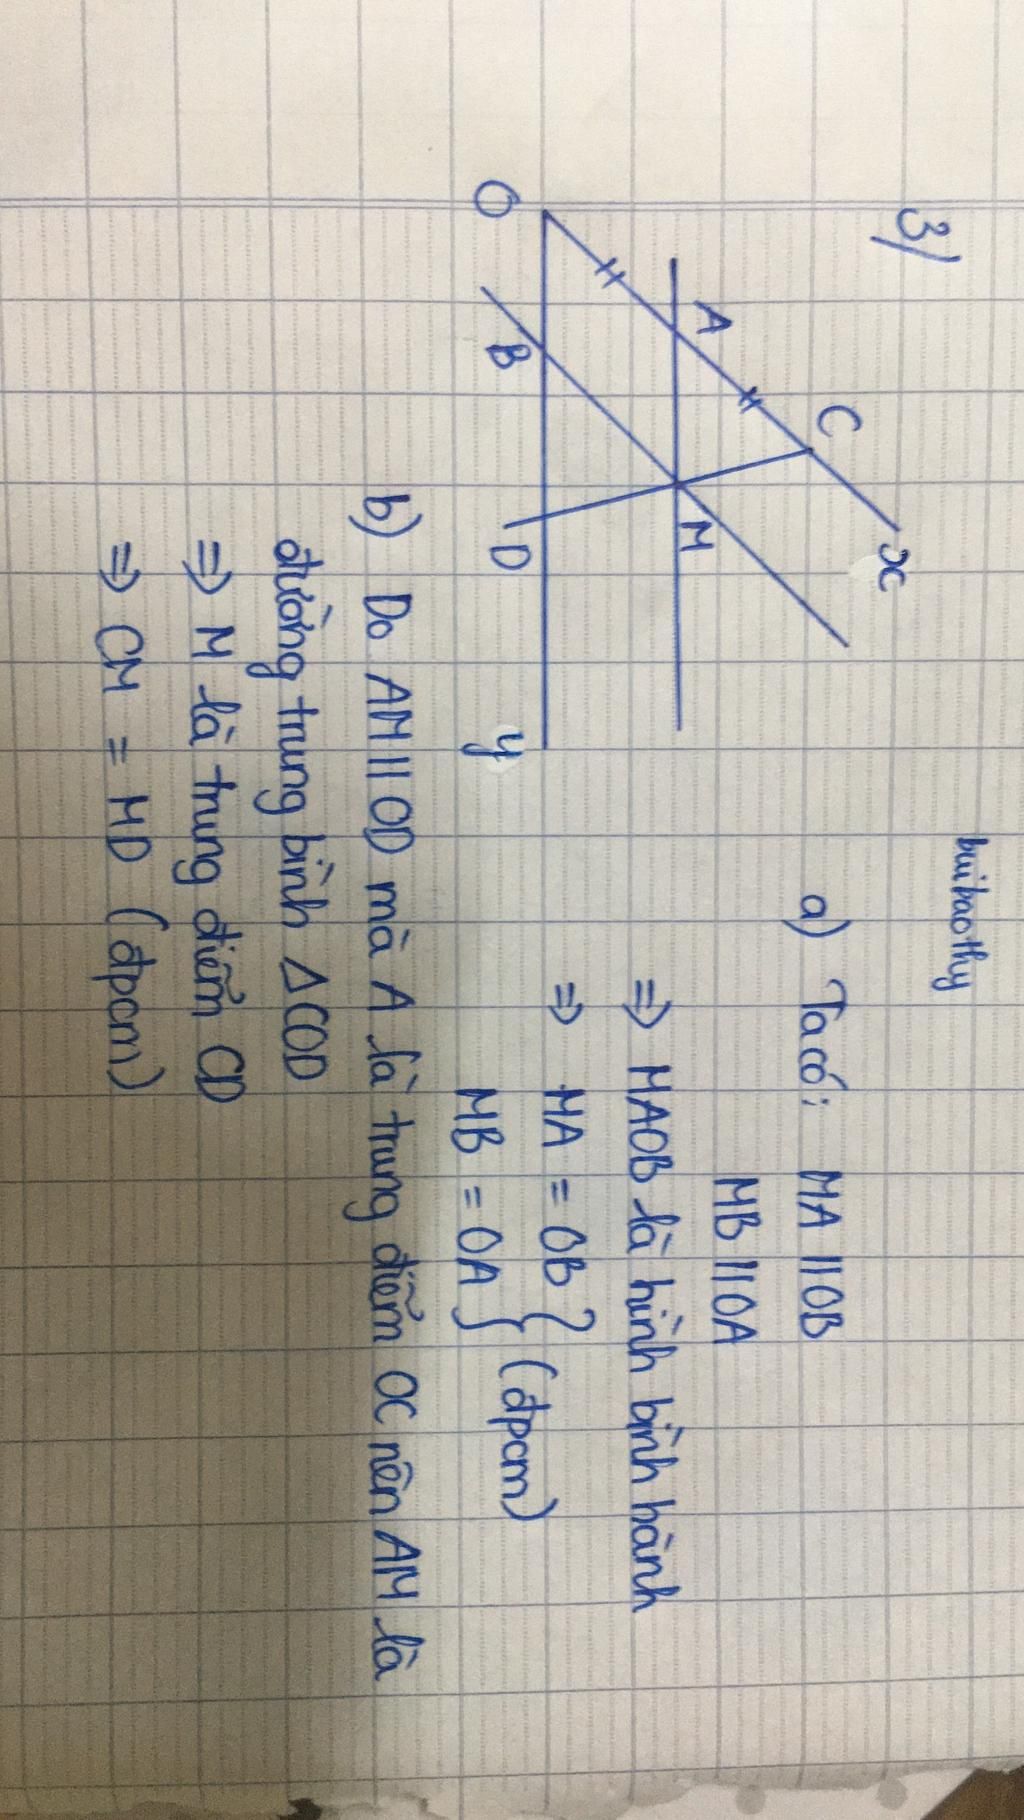 buibaothy
3/
x
C
A
M
O
B
D
y
a) Ta có: MA || OB
MB || OA
=> MAOB là hình bình hành
=> MA = OB
MB = OA } (đpcm)
b) Do AM || OD mà A là trung điểm OC nên AM là
đường trung bình Δ COD
=> M là trung điểm CD
=> CM = MD (đpcm)